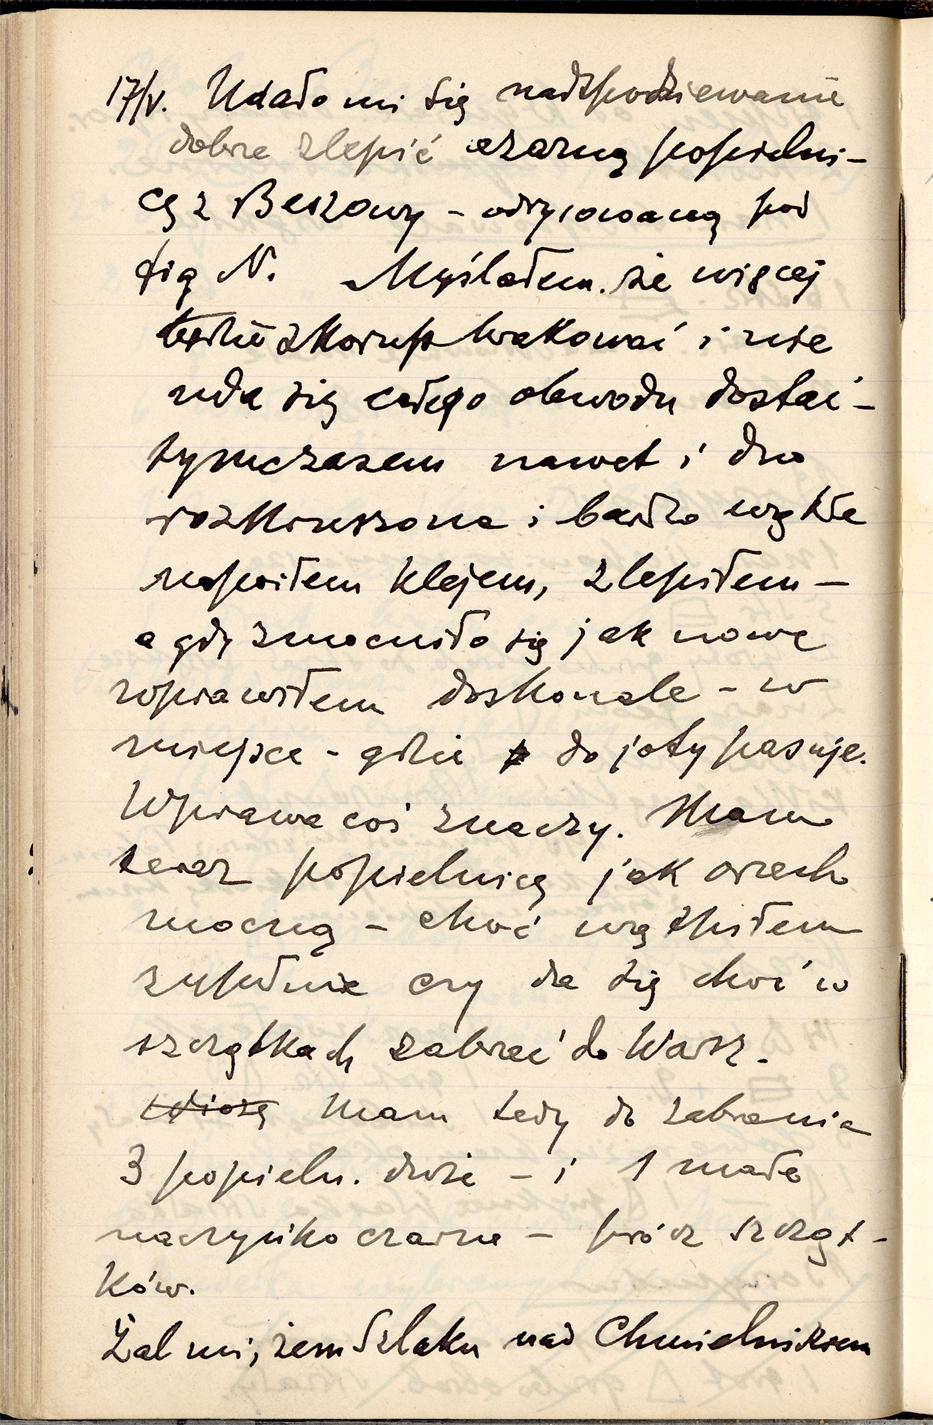 17/V. Udało mi się nadspodziewanie
dobrze zlepić czarną popielni-
cę z Beszowy – odrysowaną pod
fig N. Myślałem że więcej
skorup brakować i nie
uda się całego obwodu dostać –
tymczasem nawet i dno
rozkruszone i bardzo wątłe
napoiłem klejem, zlepiłem –
a gdy zmocniło się jak nowe
wprawiłem doskonale – w
miejsce – gdzie do joty pasuje.
Wprawa coś znaczy. Mam
teraz popielnicę jak orzech
mocną – choć wątpiłem
zupełnie czy da się choć w
szczątkach zabrać do Warsz.
Wiozę Mam tedy do zabrania
3 popieln. duże – i 1 małe
naczyńko czarne – prócz szcząt-
ków.
Żal mi, żem Szlaku nad Chmielnikiem